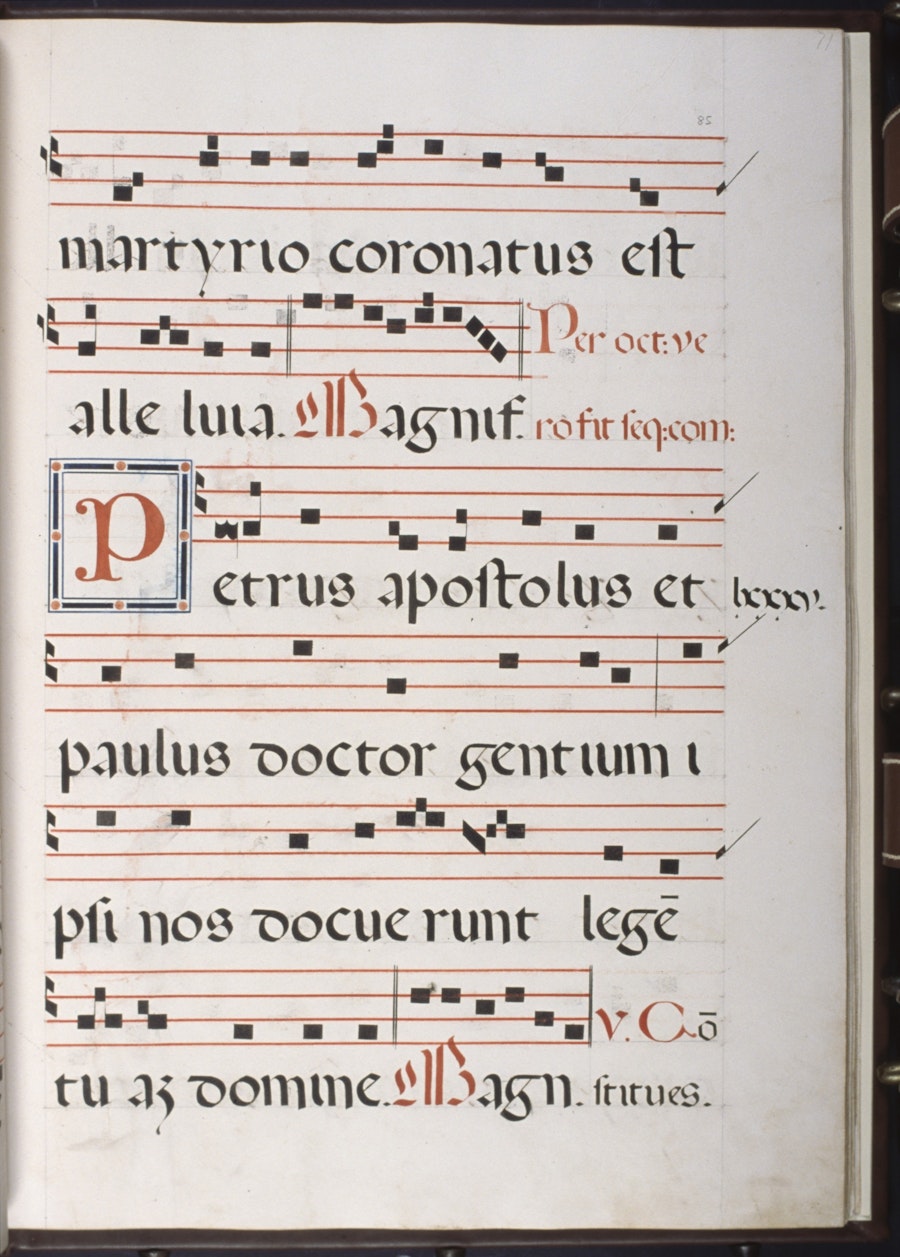 85
martyrio coronatus est
Per oct: ve
alle luia. Magnif. ro fit seq: com:
Petrus apostolus et lxxxv.
paulus doctor gentium i
psi nos docue runt legē
v. Cō
tu aʒ domine. Magn. stitues.